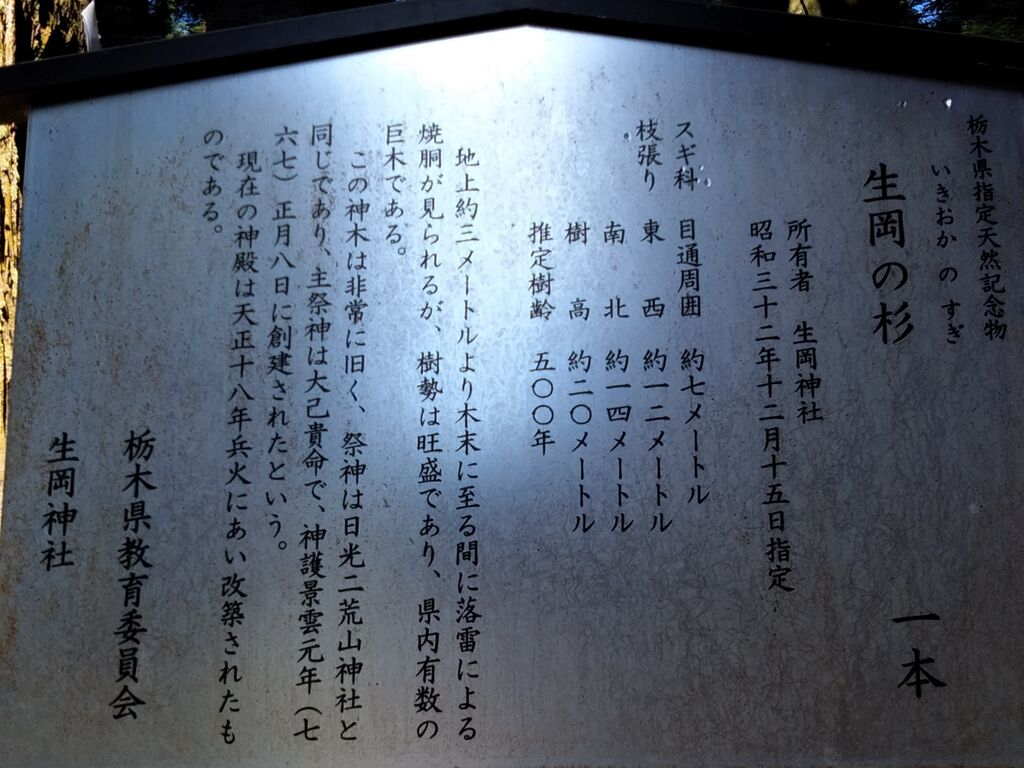 栃木県指定天然記念物
いきおか の すぎ
生岡の杉 一本
所有者 生岡神社
昭和三十二年十二月十五日指定
スギ科 目通周囲 約七メートル
枝張り 東 西 約一二メートル
南 北 約一四メートル
樹 高 約二〇メートル
推定樹齢 五〇〇年
地上約三メートルより木末に至る間に落雷による
焼胴が見られるが、樹勢は旺盛であり、県内有数の
巨木である。
この神木は非常に旧く、祭神は日光二荒山神社と
同じであり、主祭神は大己貴命で、神護景雲元年（七
六七）正月八日に創建されたという。
現在の神殿は天正十八年兵火にあい改築されたも
のである。
栃木県教育委員会
生岡神社